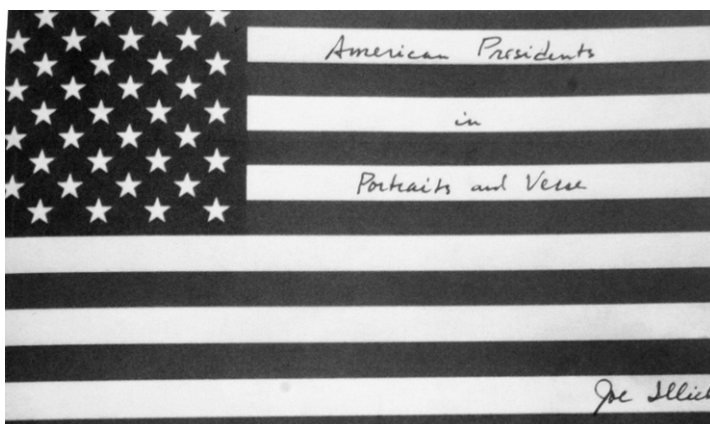 American Presidents
in
Portraits and Verse
Joe Illich